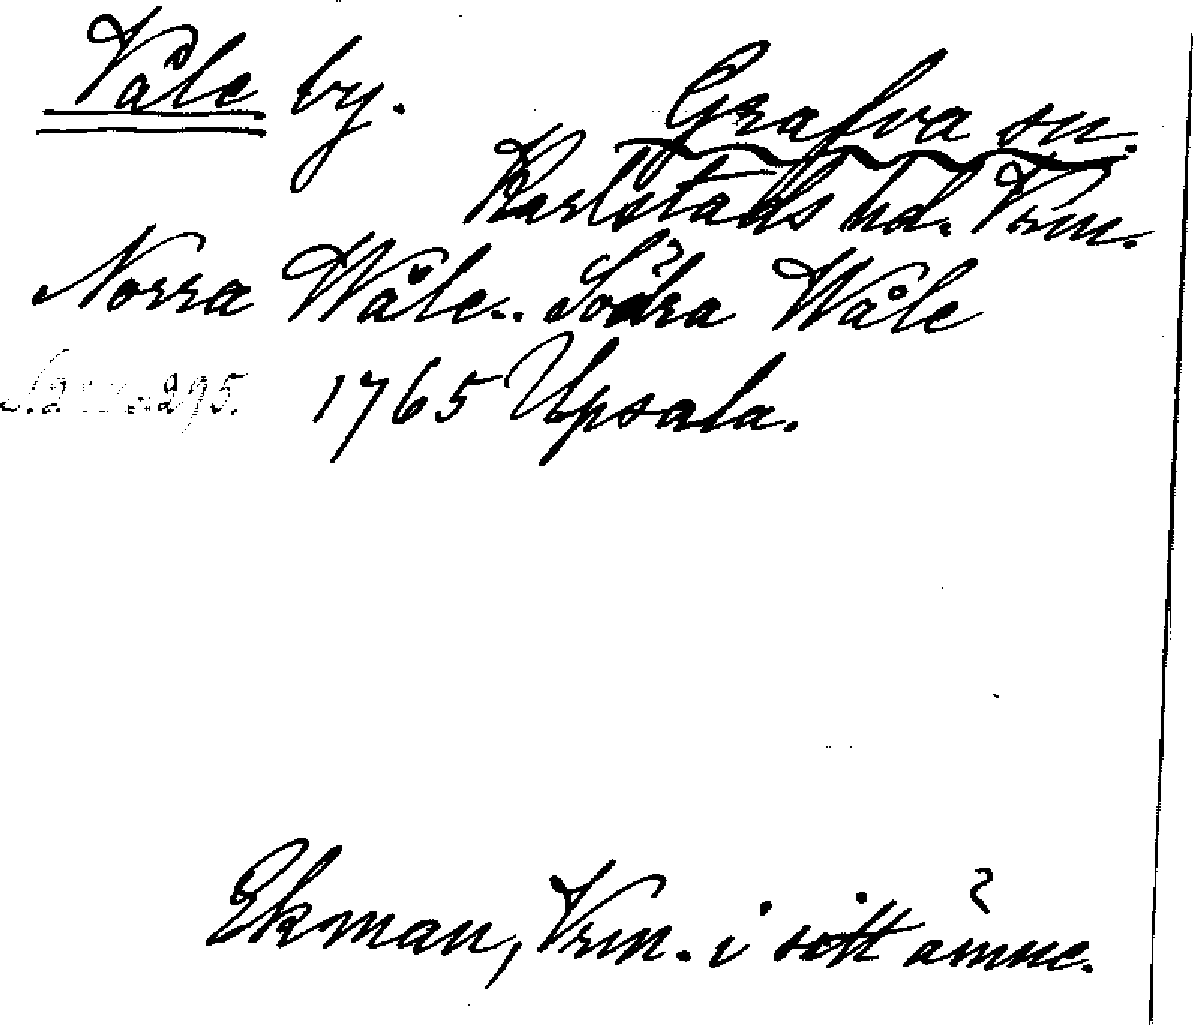 Våle by.
Grafva sn.
Karlstads hd. Vrm.
Norra Wåle. Södra Wåle
1765 Upsala.
Ekman, Vrm. i sitt ämne.